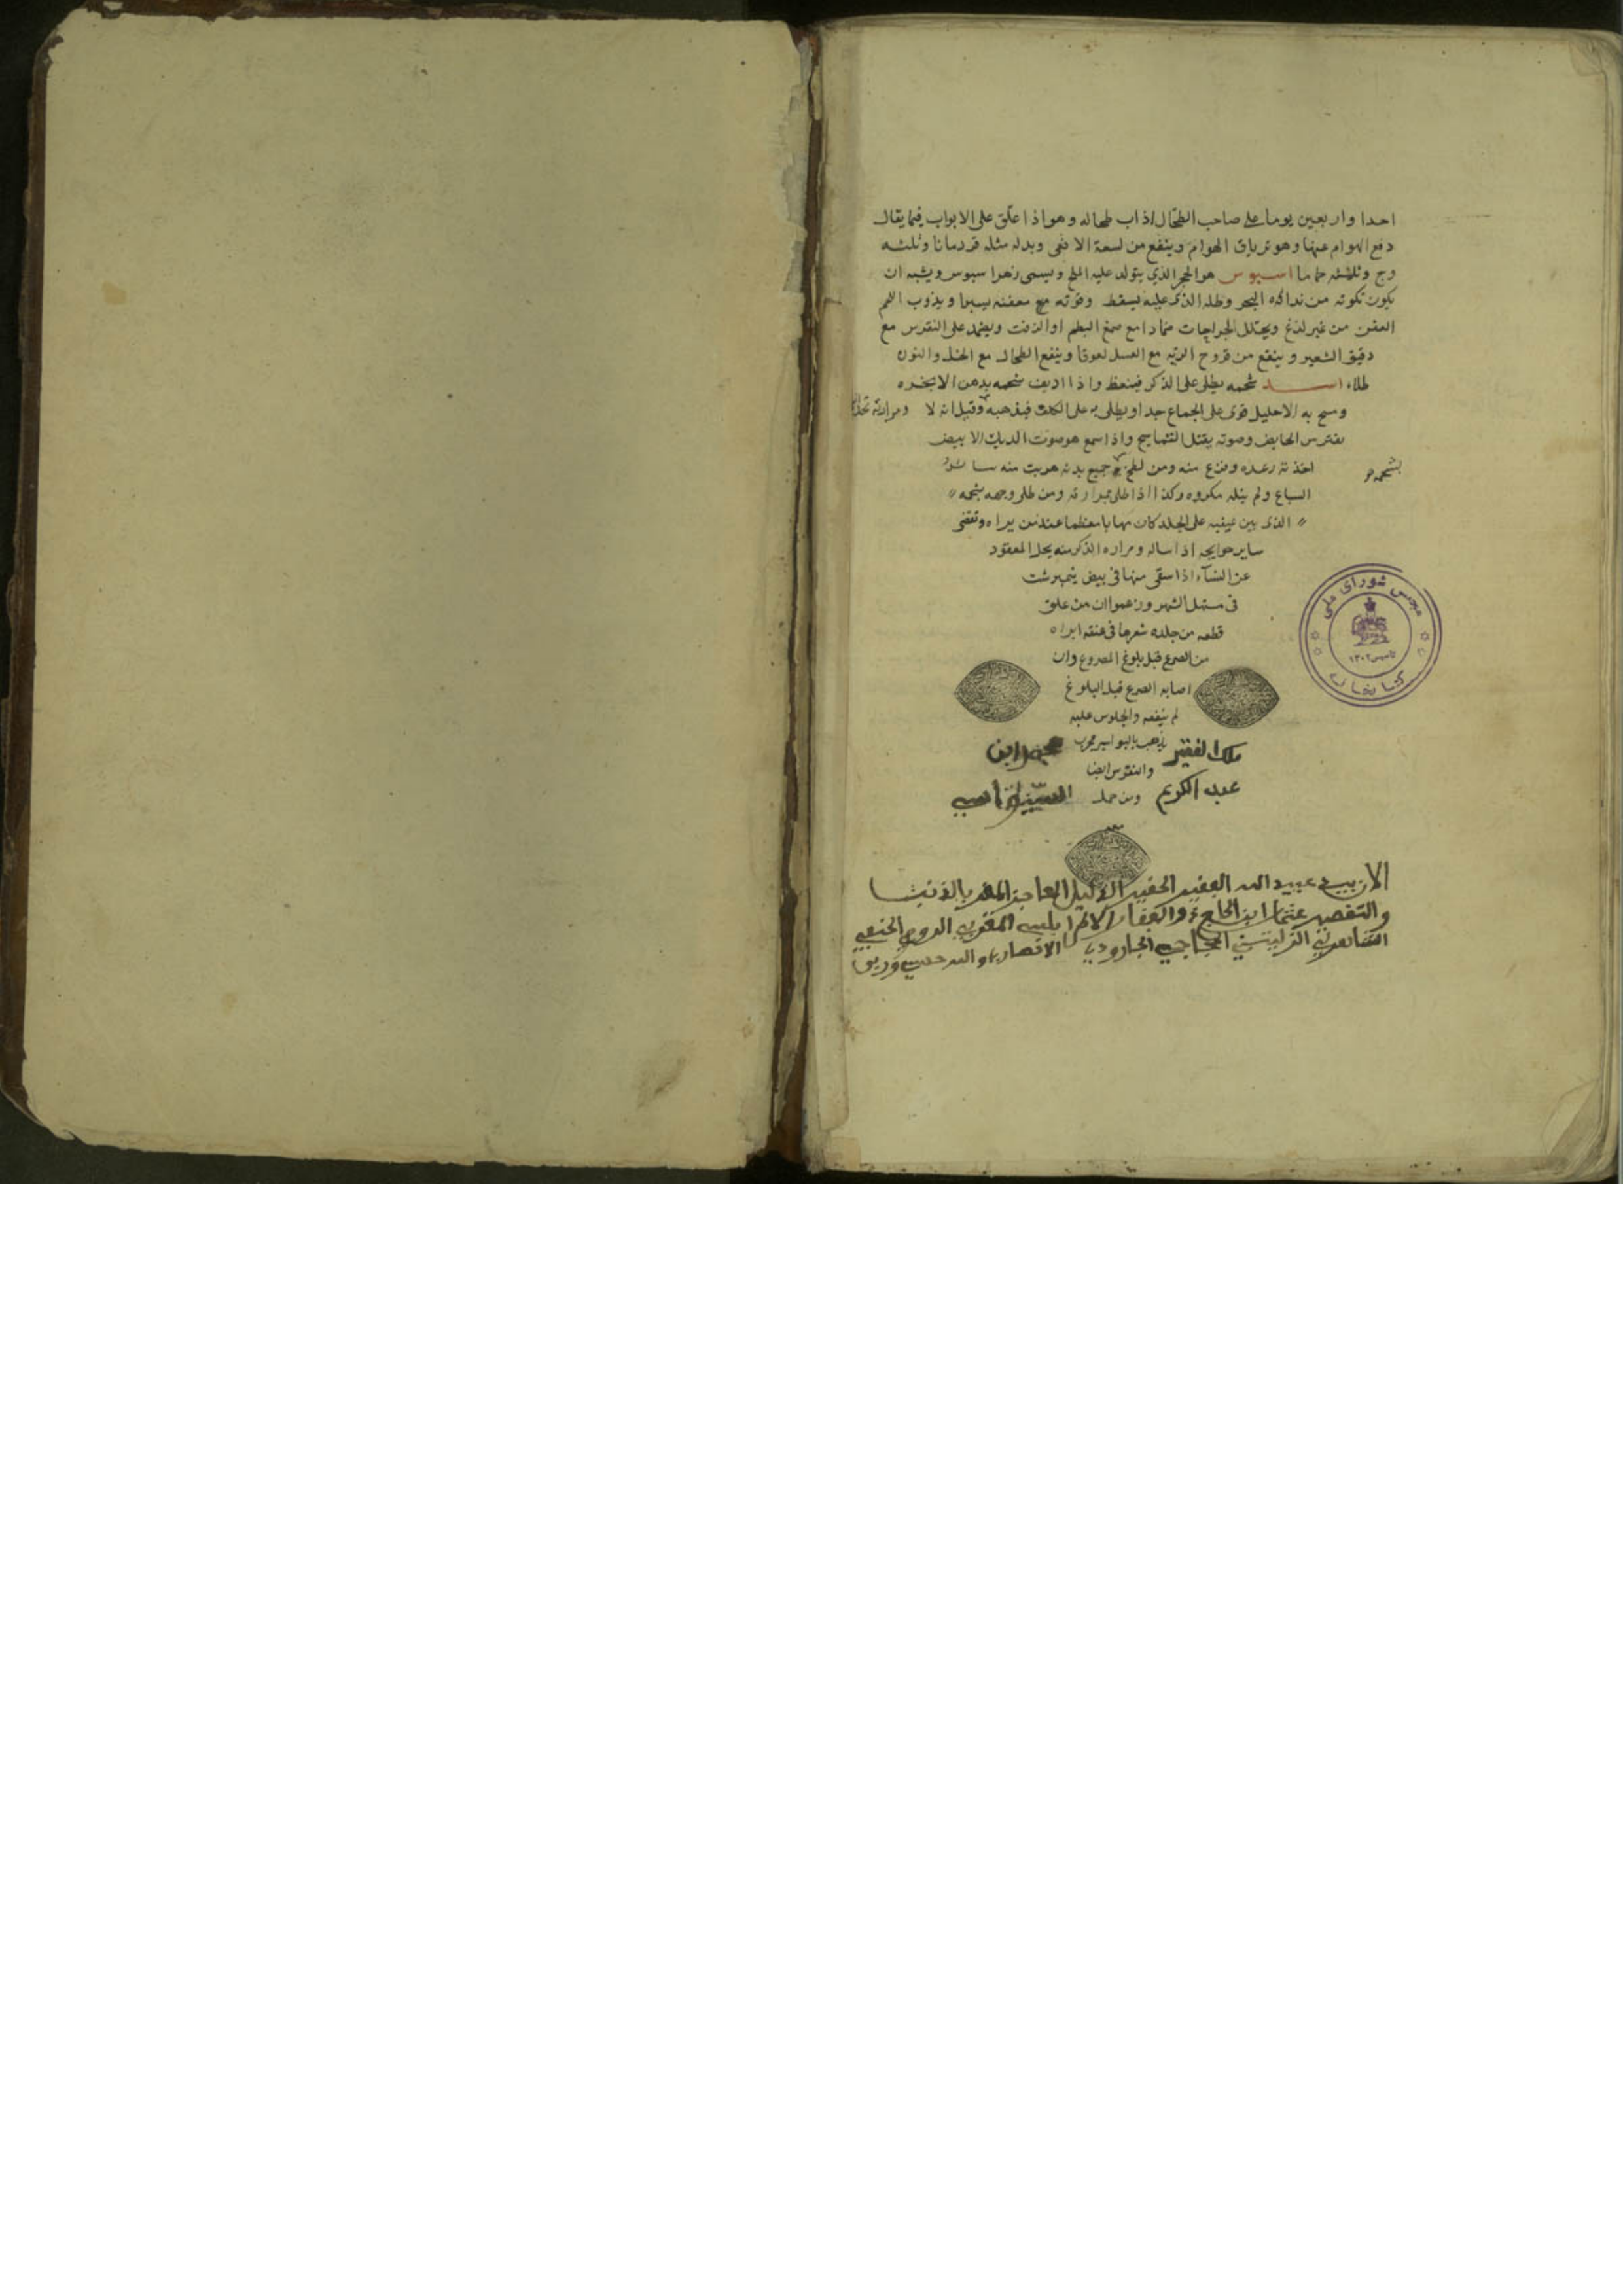 احدا واربعين يوما على صاحب الطحال اذاب طحاله وهو اذا علق على الابواب فيما يقال
دفع الهوام عنها وهو ترياق الهوام وينفع من لسعة الافعى وبدله مثله قردمانا وثلثه
وج وثلثه حماما اسيوس هو الحجر الذي يتولد عليه الملح ويسمى زهرا سيوس ويشبه ان
يكون تكونه من نداوة البحر وطله الذى عليه يسقط وقوته مع معفنه يسيرا ويذوب اللحم
العفن من غير لذع ويحلل الجراحات ضمادا مع صمغ البطم او الزفت ويضمد على النقرس مع
دقيق الشعير وينفع من قروح الريه مع العسل لعوقا وينفع الطحال مع الخل والنون
طلاء اسد شحمه يطلى على الذكر فينعظ واذا اديف شحمه بدهن الابخره
ومسح به الاحليل قوى على الجماع جدا ويطلى به على الكلف فيذهبه وقيل انه لا
يفترس الحايض وصوته يقتل التماسيح واذا سمع هو صوت الديك الابيض
اخذته رعده وفزع منه ومن لطخ جميع بدنه هربت منه ساير
بشحمه
السباع ولم ينله مكروه وكذا اذا طلى بمرارته ومن طلى وجهه بشحمه
الذى بين عينيه على الجلد كان مهابا معظما عند من يراه وتقضى
ساير حوايجه اذا ساله ومراره الذكر منه يحل المعقود
عن النساء اذا سقى منها فى بيض نيمبرشت
فى مستهل الشهر وزعموا ان من علق
قطعه من جلده شعرها فى عنقه ابراه
من الصرع قبل بلوغ المصروع وان
اصابه الصرع قبل البلوغ
لم ينفعه والجلوس عليه
يذهب بالبواسير مجرب
والنقرس ايضا
ومن حمل
ملك الفقير محمد ابن
عبد الكريم
عبيد الله الفقير الحقير الذليل العاجز المقر بالذنب
والتقصير عثمان ابن الحاج
مجلس شوراى ملى
تاسيس ١٣٠٢
كتابخانه